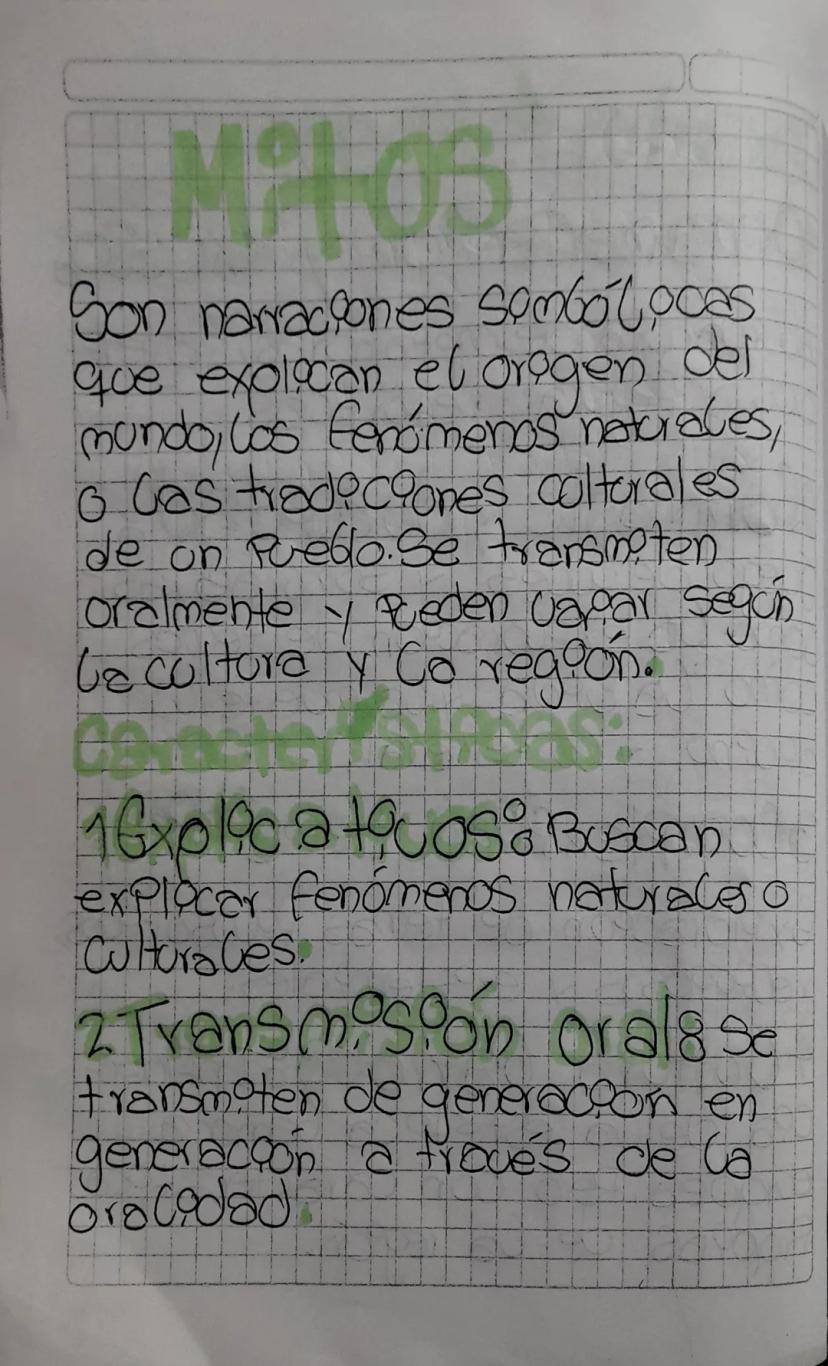 Mitos
Son narraciones simbólicas
que explican el origen del
mundo, los fenómenos naturales,
o las tradiciones culturales
de un Pueblo. Se transmiten
oralmente y Pueden variar según
la cultura y la región.
Características:
1 Explicativos: Buscan
explicar fenómenos naturales o
culturales.
2 Transmisión oral: Se
transmiten de generación en
generación a través de la
oralidad.